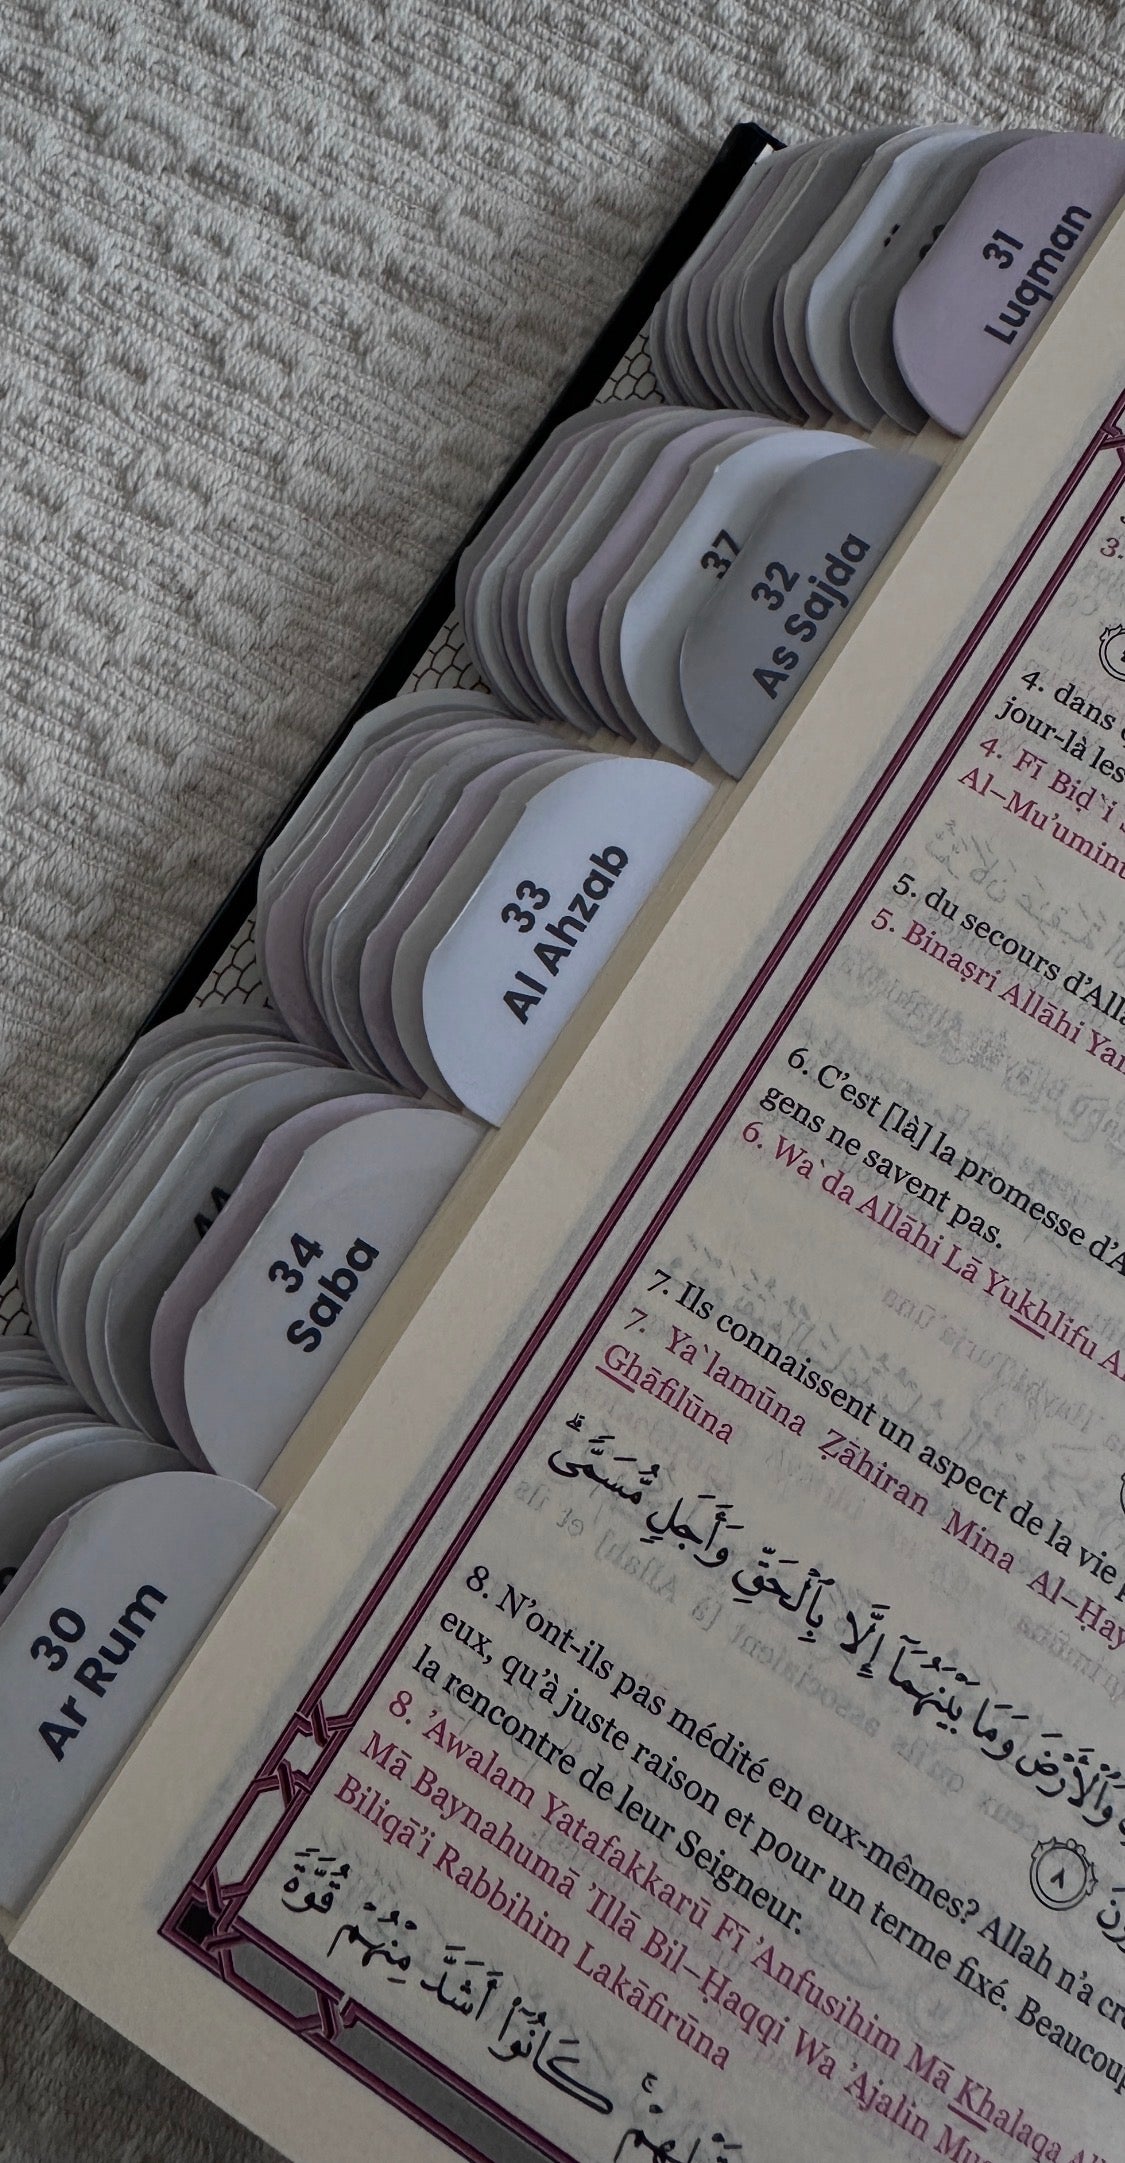 31
Luqman
37
32
As Sajda
33
Al Ahzab
44
34
Saba
30
Ar Rum
3.
4. dans
jour-là les
4. Fī Biḍ`i
Al–Mu'umin
5. du secours d'Alla
5. Binaṣri Allāhi Yan
6. C'est [là] la promesse d'A
gens ne savent pas.
6. Wa`da Allāhi Lā Yukhlifu A
7. Ils connaissent un aspect de la vie
7. Ya`lamūna Ẓāhiran Mina Al–Ḥay
Ghāfilūna
وَٱلْأَرْضَ وَمَا بَيْنَهُمَآ إِلَّا بِٱلْحَقِّ وَأَجَلٍ مُّسَمًّى ۗ
8. N'ont-ils pas médité en eux-mêmes? Allah n'a cr
eux, qu'à juste raison et pour un terme fixé. Beaucoup
la rencontre de leur Seigneur.
8. 'Awalam Yatafakkarū Fī 'Anfusihim Mā Khalaqa Al
Mā Baynahumā 'Illā Bil–Ḥaqqi Wa 'Ajalin Mu
Biliqā'i Rabbihim Lakāfirūna
٨
كَانُوٓا۟ أَشَدَّ مِنْهُمْ قُوَّةً